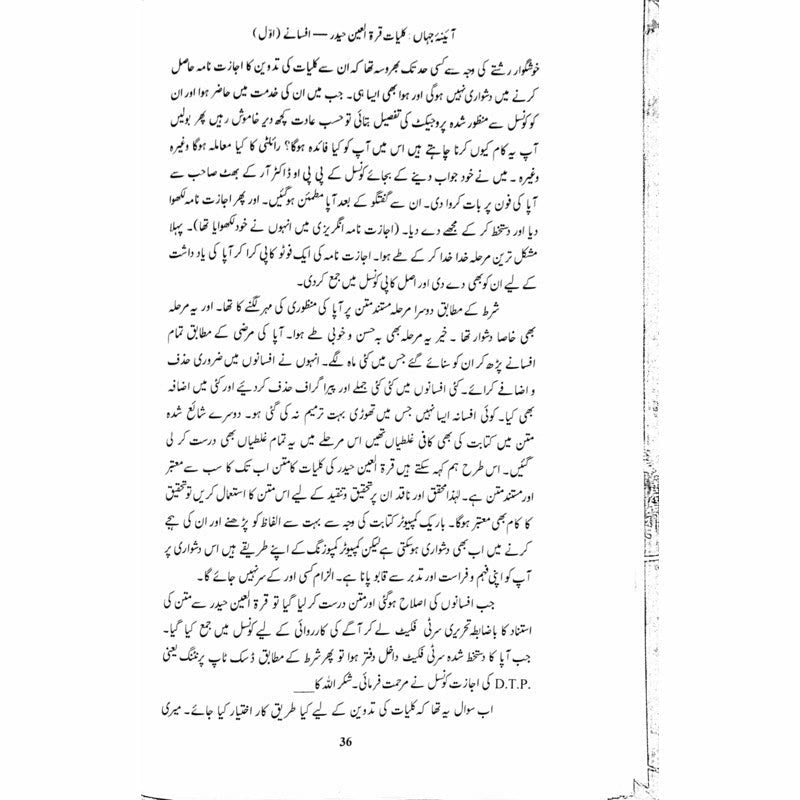 آئینۂ جہاں : کلیات قرۃ العین حیدر — افسانے (اوّل)
خوشگوار رشتے کی وجہ سے کسی حد تک بھروسہ تھا کہ ان سے کلیات کی تدوین کا اجازت نامہ حاصل
کرنے میں دشواری نہیں ہوگی اور ہوا بھی ایسا ہی۔ جب میں ان کی خدمت میں حاضر ہوا اور ان
کو کونسل سے منظور شدہ پروجیکٹ کی تفصیل بتائی تو حسب عادت کچھ دیر خاموش رہیں پھر بولیں
آپ یہ کام کیوں کرنا چاہتے ہیں اس میں آپ کو کیا فائدہ ہوگا؟ رائلٹی کا کیا معاملہ ہوگا وغیرہ
وغیرہ۔ میں نے خود جواب دینے کے بجائے کونسل کے پی پی او ڈاکٹر آر کے بھٹ صاحب سے
آپا کی فون پر بات کروا دی۔ ان سے گفتگو کے بعد آپا مطمئن ہوگئیں۔ اور پھر اجازت نامہ لکھوا
دیا اور دستخط کر کے مجھے دے دیا۔ (اجازت نامہ انگریزی میں انہوں نے خود لکھوایا تھا)۔ پہلا
مشکل ترین مرحلہ خدا خدا کر کے طے ہوا۔ اجازت نامہ کی ایک فوٹو کاپی کرا کر آپا کی یاد داشت
کے لیے ان کو بھی دے دی اور اصل کاپی کونسل میں جمع کردی۔
شرط کے مطابق دوسرا مرحلہ مستند متن پر آپا کی منظوری کی مہر لگنے کا تھا۔ اور یہ مرحلہ
بھی خاصا دشوار تھا ۔ خیر یہ مرحلہ بھی بہ حسن و خوبی طے ہوا۔ آپا کی مرضی کے مطابق تمام
افسانے پڑھ کر ان کو سنائے گئے جس میں کئی ماہ لگے۔ انہوں نے افسانوں میں ضروری حذف
و اضافے کرائے۔ کئی افسانوں میں کئی کئی جملے اور پیرا گراف حذف کردیے اور کئی میں اضافہ
بھی کیا۔ کوئی افسانہ ایسا نہیں جس میں تھوڑی بہت ترمیم نہ کی گئی ہو۔ دوسرے شائع شدہ
متن میں کتابت کی بھی کافی غلطیاں تھیں اس مرحلے میں یہ تمام غلطیاں بھی درست کر لی
گئیں۔ اس طرح ہم کہہ سکتے ہیں قرۃ العین حیدر کی کلیات کا متن اب تک کا سب سے معتبر
اور مستند متن ہے۔ لہٰذا محقق اور ناقد ان پر تحقیق و تنقید کے لیے اس متن کا استعمال کریں تو تحقیق
کا کام بھی معتبر ہوگا۔ باریک کمپیوٹر کتابت کی وجہ سے بہت سے الفاظ کو پڑھنے اور ان کی ہجے
کرنے میں اب بھی دشواری ہوسکتی ہے لیکن کمپیوٹر کمپوزنگ کے اپنے طریقے ہیں اس دشواری پر
آپ کو اپنی فہم و فراست اور تدبر سے قابو پانا ہے۔ الزام کسی اور کے سر نہیں جائے گا۔
جب افسانوں کی اصلاح ہوگئی اور متن درست کر لیا گیا تو قرۃ العین حیدر سے متن کی
استناد کا باضابطہ تحریری سرٹی فکیٹ لے کر آگے کی کارروائی کے لیے کونسل میں جمع کیا گیا۔
جب آپا کا دستخط شدہ سرٹی فکیٹ داخل دفتر ہوا تو پھر شرط کے مطابق ڈسک ٹاپ پرنٹنگ یعنی
D.T.P. کی اجازت کونسل نے مرحمت فرمائی۔ شکر اللہ کا___
اب سوال یہ تھا کہ کلیات کی تدوین کے لیے کیا طریق کار اختیار کیا جائے۔ میری
36